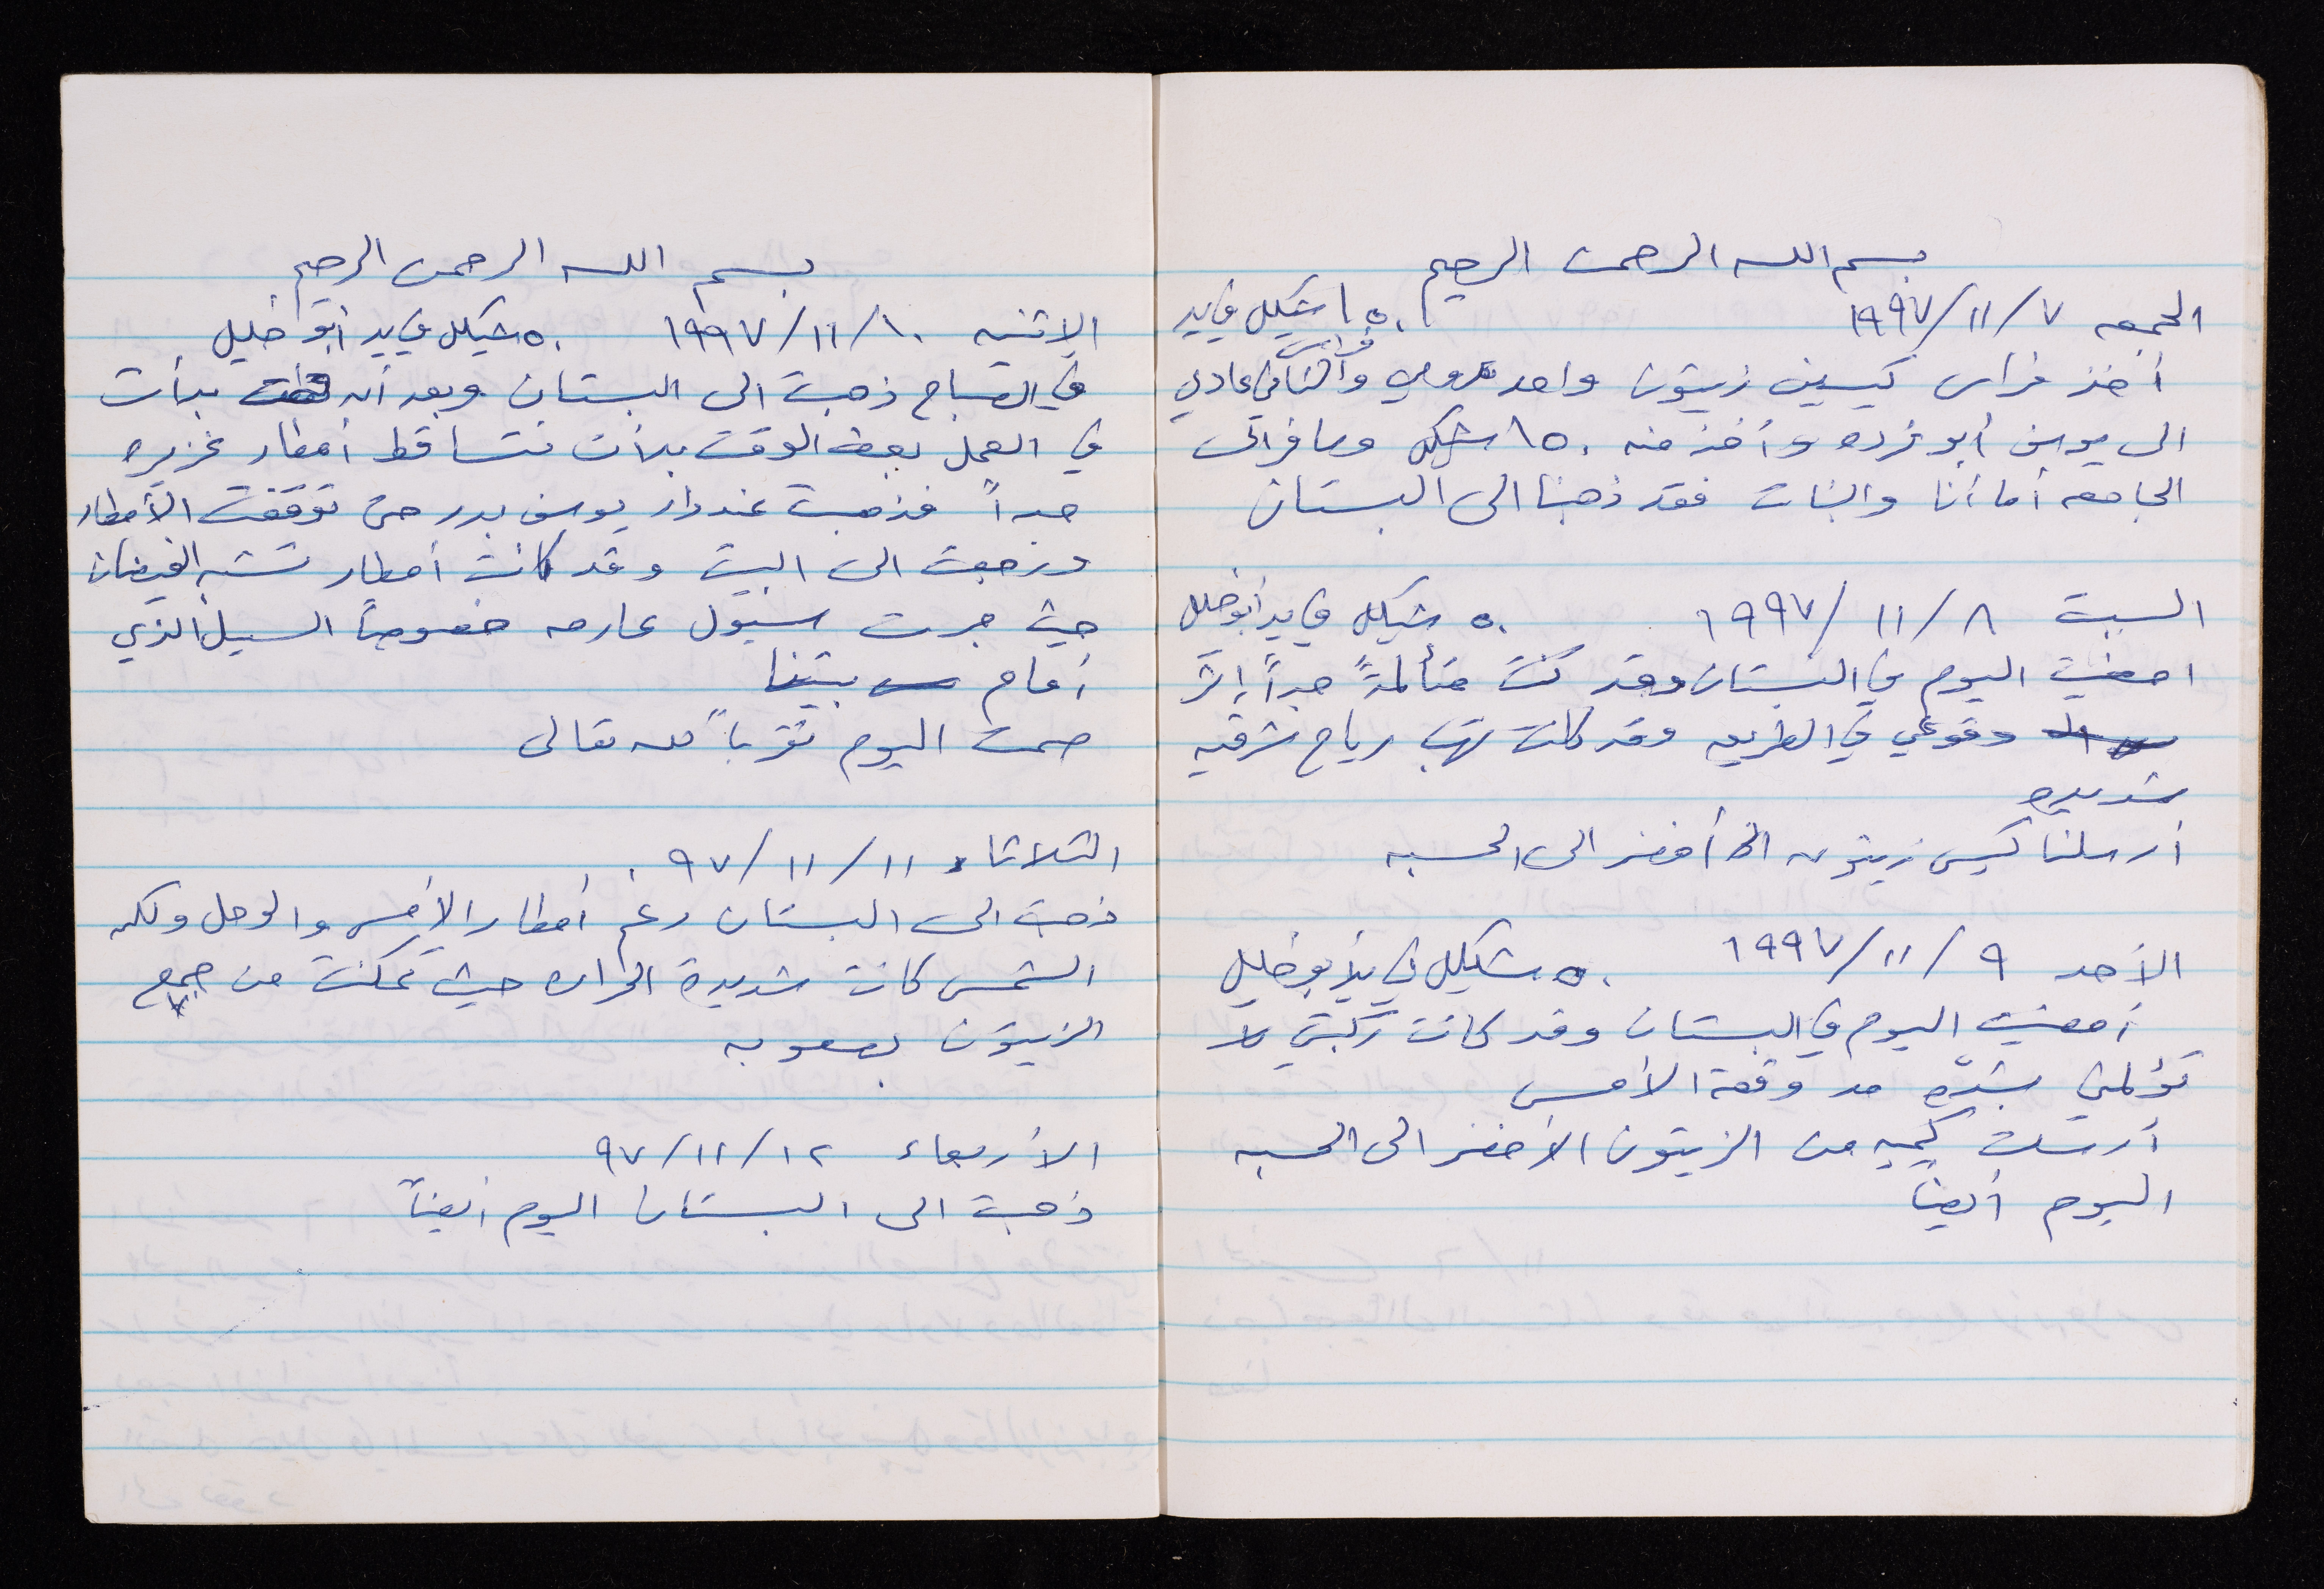 بسم الله الرحمن الرحيم
الجمعه ٧/١١/١٩٩٧ ١٥٠ شيكل في يد فراس
أخذ فراس كيسين زيتون واحد رومي والثاني عادي
الى يوسف أبو فرده وأخذ منه ١٥٠ شيكل وسافر الى
الجامعه أما أنا والبنات فقد ذهبنا الى البستان
السبت ٨/١١/١٩٩٧ ٥٠ شيكل في يد أبو خليل
امضيت اليوم في البستان وقد كنت متألمةً جداً إثر
وقوعي في الطريق وقد كانت تهب رياح شرقيه
شديده
أرسلنا كيس زيتون أخضر الى الحسبه
الأحد ٩/١١/١٩٩٧ ٥٠ شيكل في يد أبو خليل
أمضيت اليوم في البستان وقد كانت ركبتي
تؤلمني بشدّه من وقعة الأمس
أرسلت كميه من الزيتون الأخضر الى الحسبه
اليوم أيضاً
بسم الله الرحمن الرحيم
الاثنين ١٠/١١/١٩٩٧ ٥٠ شيكل في يد أبو خليل
في الصباح ذهبت الى البستان وبعد أن بدأت
في العمل بعض الوقت بدأت تتساقط أمطار غزيره
جداً فذهبت عند دار يوسف بدر حتى توقفت الأمطار
ورجعت الى البيت وقد كانت أمطار تشبه الفيضان
حيث جرت سيول عارمه خصوصاً السيل الذي
أمام بيتنا
صمت اليوم تقرباً لله تعالى
الثلاثاء ١١/١١/٩٧
ذهبت الى البستان رغم أمطار الأمس والوحل ولكن
الشمس كانت شديدة الحراره حيث تمكنت من جمع
الزيتون بصعوبه
الأربعاء ١٢/١١/٩٧
ذهبت الى البستان اليوم أيضاً